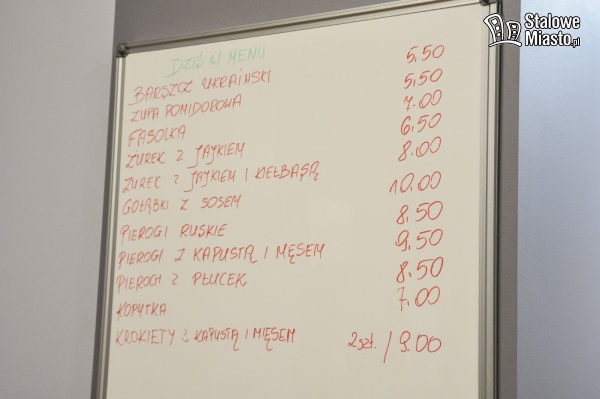 Stalowe
Miasto.pl
DZIŚ W MENU
BARSZCZ UKRAIŃSKI 5,50
ZUPA POMIDOROWA 5,50
FASOLKA 7.00
ŻUREK Z JAJKIEM 6,50
ŻUREK Z JAJKIEM I KIEŁBASĄ 8.00
GOŁĄBKI Z SOSEM 10.00
PIEROGI RUSKIE 8.50
PIEROGI Z KAPUSTĄ I MĘSEM 9,50
PIEROGI Z PŁUCEK 8.50
KOPYTKA 7.00
KROKIETY Z KAPUSTĄ I MIĘSEM 2szt. / 9.00